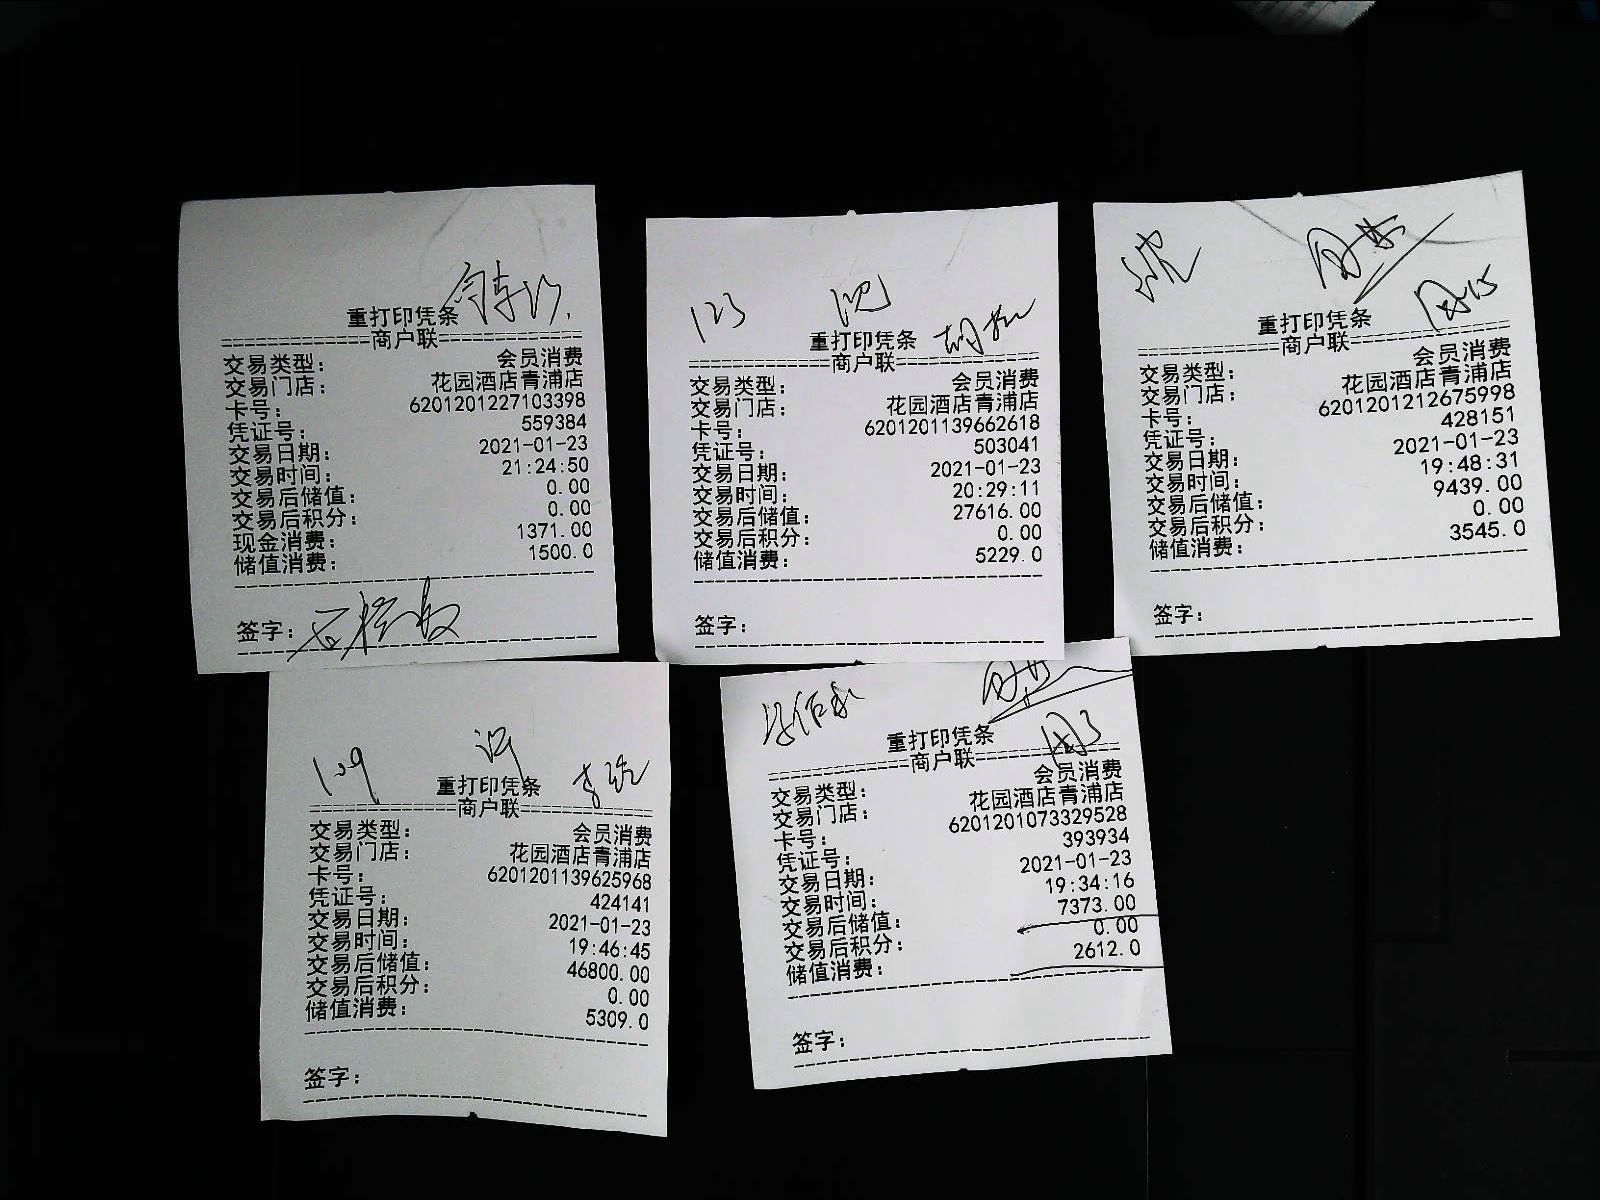 重打印凭条
商户联
交易类型： 会员消费
交易门店： 花园酒店青浦店
卡号： 6201201227103398
凭证号： 559384
交易日期： 2021-01-23
交易时间： 21:24:50
交易后储值： 0.00
交易后积分： 0.00
现金消费： 1371.00
储值消费： 1500.0
签字：
123
重打印凭条
商户联
交易类型： 会员消费
交易门店： 花园酒店青浦店
卡号： 6201201139662618
凭证号： 503041
交易日期： 2021-01-23
交易时间： 20:29:11
交易后储值： 27616.00
交易后积分： 0.00
储值消费： 5229.0
签字：
重打印凭条
商户联
交易类型： 会员消费
交易门店： 花园酒店青浦店
卡号： 6201201212675998
凭证号： 428151
交易日期： 2021-01-23
交易时间： 19:48:31
交易后储值： 9439.00
交易后积分： 0.00
储值消费： 3545.0
签字：
109
重打印凭条
商户联
交易类型： 会员消费
交易门店： 花园酒店青浦店
卡号： 6201201139625968
凭证号： 424141
交易日期： 2021-01-23
交易时间： 19:46:45
交易后储值： 46800.00
交易后积分： 0.00
储值消费： 5309.0
签字：
重打印凭条
商户联
交易类型： 会员消费
交易门店： 花园酒店青浦店
卡号： 6201201073329528
凭证号： 393934
交易日期： 2021-01-23
交易时间： 19:34:16
交易后储值： 7373.00
交易后积分： 0.00
储值消费： 2612.0
签字：